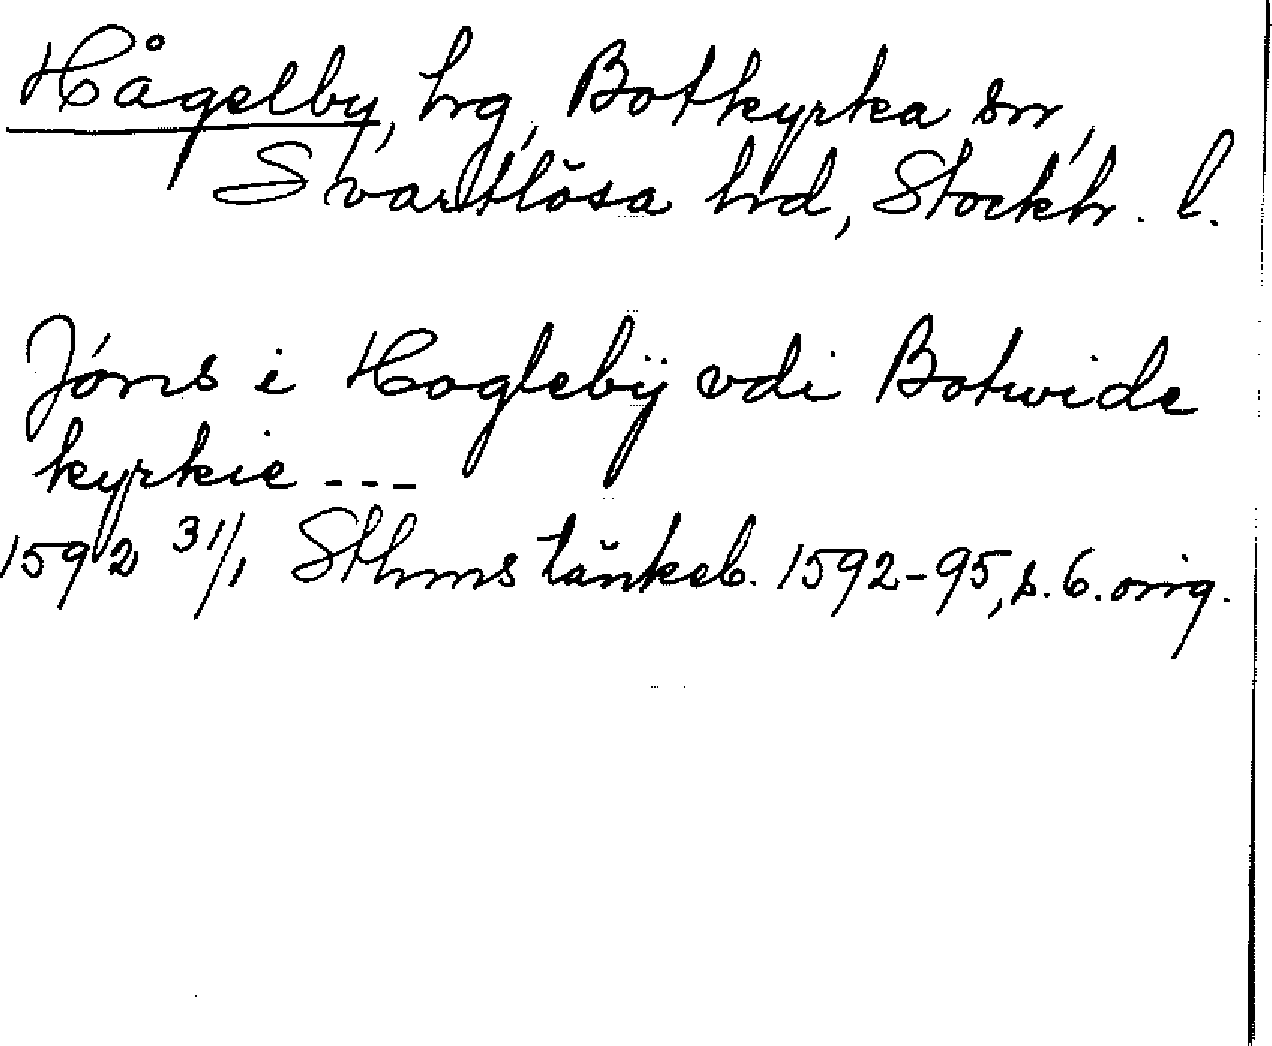 Hågelby, hrg, Botkyrka sn,
Svartlösa hrd, Stockh. l.
Jóns i Hoglebÿ vdi Botwide
kyrkie ---
1592 31/1 Sthms tänkeb. 1592-95, s. 6. orig.